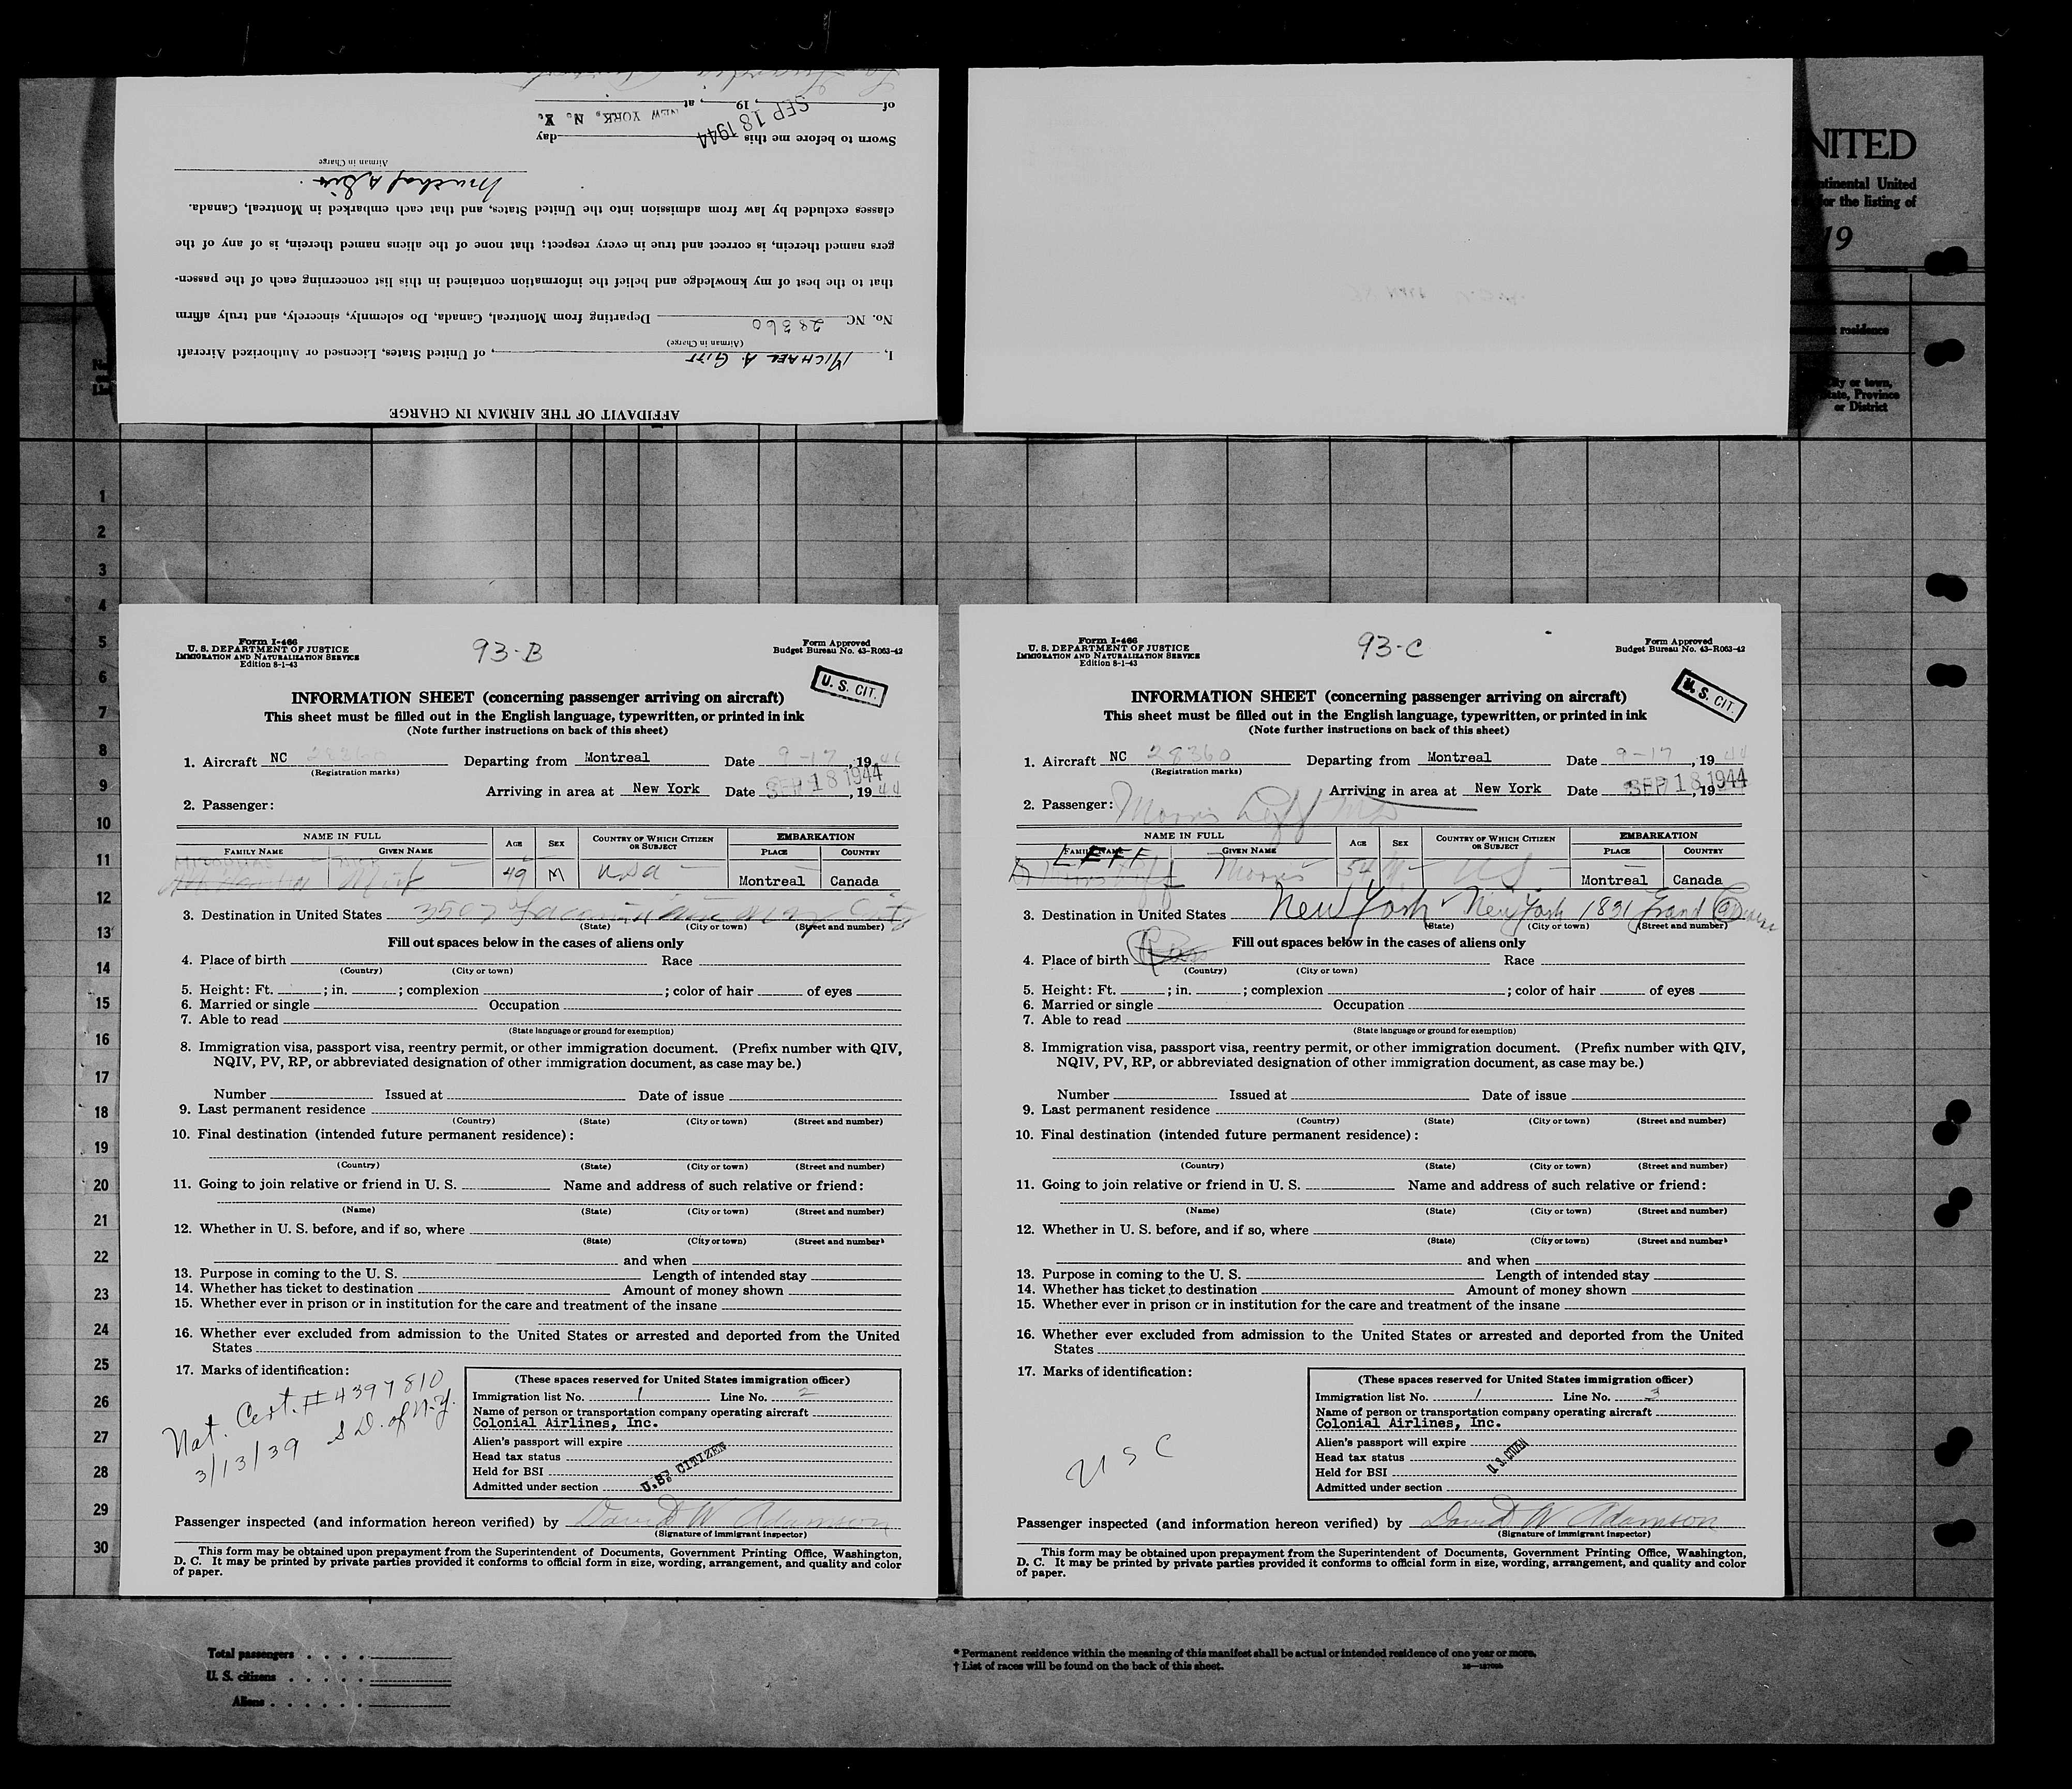 AFFIDAVIT OF THE AIRMAN IN CHARGE
I, MICHAEL A. GITT, of United States, Licensed or Authorized Aircraft
(Airman in Charge)
No. NC 28360 Departing from Montreal, Canada, Do solemnly, sincerely, and truly affirm
that to the best of my knowledge and belief the information contained in this list concerning each of the passen-
gers named therein, is correct and true in every respect; that none of the aliens named therein, is of any of the
classes excluded by law from admission into the United States, and that each embarked in Montreal, Canada.
Airman in Charge
Sworn to before me this SEP 18 1944 day
of , 19 , at NEW YORK, N. Y.
NITED
tinental United
or the listing of
19
residence
ity or town,
tate, Province
or District
1
2
3
4
5
6
7
8
9
10
11
12
13
14
15
16
17
18
19
20
21
22
23
24
25
26
27
28
29
30
Form I-466
U. S. DEPARTMENT OF JUSTICE
IMMIGRATION AND NATURALIZATION SERVICE
Edition 8-1-43
93-B
Form Approved
Budget Bureau No. 43-R063-42
U. S. CIT.
INFORMATION SHEET (concerning passenger arriving on aircraft)
This sheet must be filled out in the English language, typewritten, or printed in ink
(Note further instructions on back of this sheet)
1. Aircraft NC 28360 Departing from Montreal Date 9-17, 1944
(Registration marks)
Arriving in area at New York Date SEP 18 1944, 1944
2. Passenger:
NAME IN FULL AGE SEX COUNTRY OF WHICH CITIZEN OR SUBJECT EMBARKATION
FAMILY NAME GIVEN NAME PLACE COUNTRY
49 M USA Montreal Canada
3. Destination in United States 3507
(State) (City or town) (Street and number)
Fill out spaces below in the cases of aliens only
4. Place of birth Race
(Country) (City or town)
5. Height: Ft. ; in. ; complexion ; color of hair of eyes
6. Married or single Occupation
7. Able to read
(State language or ground for exemption)
8. Immigration visa, passport visa, reentry permit, or other immigration document. (Prefix number with QIV,
NQIV, PV, RP, or abbreviated designation of other immigration document, as case may be.)
Number Issued at Date of issue
9. Last permanent residence
(Country) (State) (City or town) (Street and number)
10. Final destination (intended future permanent residence):
(Country) (State) (City or town) (Street and number)
11. Going to join relative or friend in U. S. Name and address of such relative or friend:
(Name) (State) (City or town) (Street and number)
12. Whether in U. S. before, and if so, where
(State) (City or town) (Street and number)
and when
13. Purpose in coming to the U. S. Length of intended stay
14. Whether has ticket to destination Amount of money shown
15. Whether ever in prison or in institution for the care and treatment of the insane
16. Whether ever excluded from admission to the United States or arrested and deported from the United
States
17. Marks of identification:
Nat. Cert. #4397810
3/13/39 S D. of N.Y.
(These spaces reserved for United States immigration officer)
Immigration list No. 1 Line No. 2
Name of person or transportation company operating aircraft
Colonial Airlines, Inc.
Alien's passport will expire
Head tax status
Held for BSI
Admitted under section
U.S. CITIZEN
Passenger inspected (and information hereon verified) by David W Adamson
(Signature of immigrant inspector)
This form may be obtained upon prepayment from the Superintendent of Documents, Government Printing Office, Washington,
D. C. It may be printed by private parties provided it conforms to official form in size, wording, arrangement, and quality and color
of paper.
Form I-466
U. S. DEPARTMENT OF JUSTICE
IMMIGRATION AND NATURALIZATION SERVICE
Edition 8-1-43
93-C
Form Approved
Budget Bureau No. 43-R063-42
U. S. CIT.
INFORMATION SHEET (concerning passenger arriving on aircraft)
This sheet must be filled out in the English language, typewritten, or printed in ink
(Note further instructions on back of this sheet)
1. Aircraft NC 28360 Departing from Montreal Date 9-17, 1944
(Registration marks)
Arriving in area at New York Date SEP 18 1944, 19
2. Passenger: Morris Leff MD
NAME IN FULL AGE SEX COUNTRY OF WHICH CITIZEN OR SUBJECT EMBARKATION
FAMILY NAME GIVEN NAME PLACE COUNTRY
LEFF Morris 54 M US Montreal Canada
3. Destination in United States New York New York 1831 Grand
(State) (City or town) (Street and number)
Fill out spaces below in the cases of aliens only
4. Place of birth Race
(Country) (City or town)
5. Height: Ft. ; in. ; complexion ; color of hair of eyes
6. Married or single Occupation
7. Able to read
(State language or ground for exemption)
8. Immigration visa, passport visa, reentry permit, or other immigration document. (Prefix number with QIV,
NQIV, PV, RP, or abbreviated designation of other immigration document, as case may be.)
Number Issued at Date of issue
9. Last permanent residence
(Country) (State) (City or town) (Street and number)
10. Final destination (intended future permanent residence):
(Country) (State) (City or town) (Street and number)
11. Going to join relative or friend in U. S. Name and address of such relative or friend:
(Name) (State) (City or town) (Street and number)
12. Whether in U. S. before, and if so, where
(State) (City or town) (Street and number)
and when
13. Purpose in coming to the U. S. Length of intended stay
14. Whether has ticket to destination Amount of money shown
15. Whether ever in prison or in institution for the care and treatment of the insane
16. Whether ever excluded from admission to the United States or arrested and deported from the United
States
17. Marks of identification:
U S C
(These spaces reserved for United States immigration officer)
Immigration list No. 1 Line No. 3
Name of person or transportation company operating aircraft
Colonial Airlines, Inc.
Alien's passport will expire
Head tax status
Held for BSI
Admitted under section
U. S. CITIZEN
Passenger inspected (and information hereon verified) by David W Adamson
(Signature of immigrant inspector)
This form may be obtained upon prepayment from the Superintendent of Documents, Government Printing Office, Washington,
D. C. It may be printed by private parties provided it conforms to official form in size, wording, arrangement, and quality and color
of paper.
Total passengers
U. S. citizens
Aliens
* Permanent residence within the meaning of this manifest shall be actual or intended residence of one year or more.
† List of races will be found on the back of this sheet.